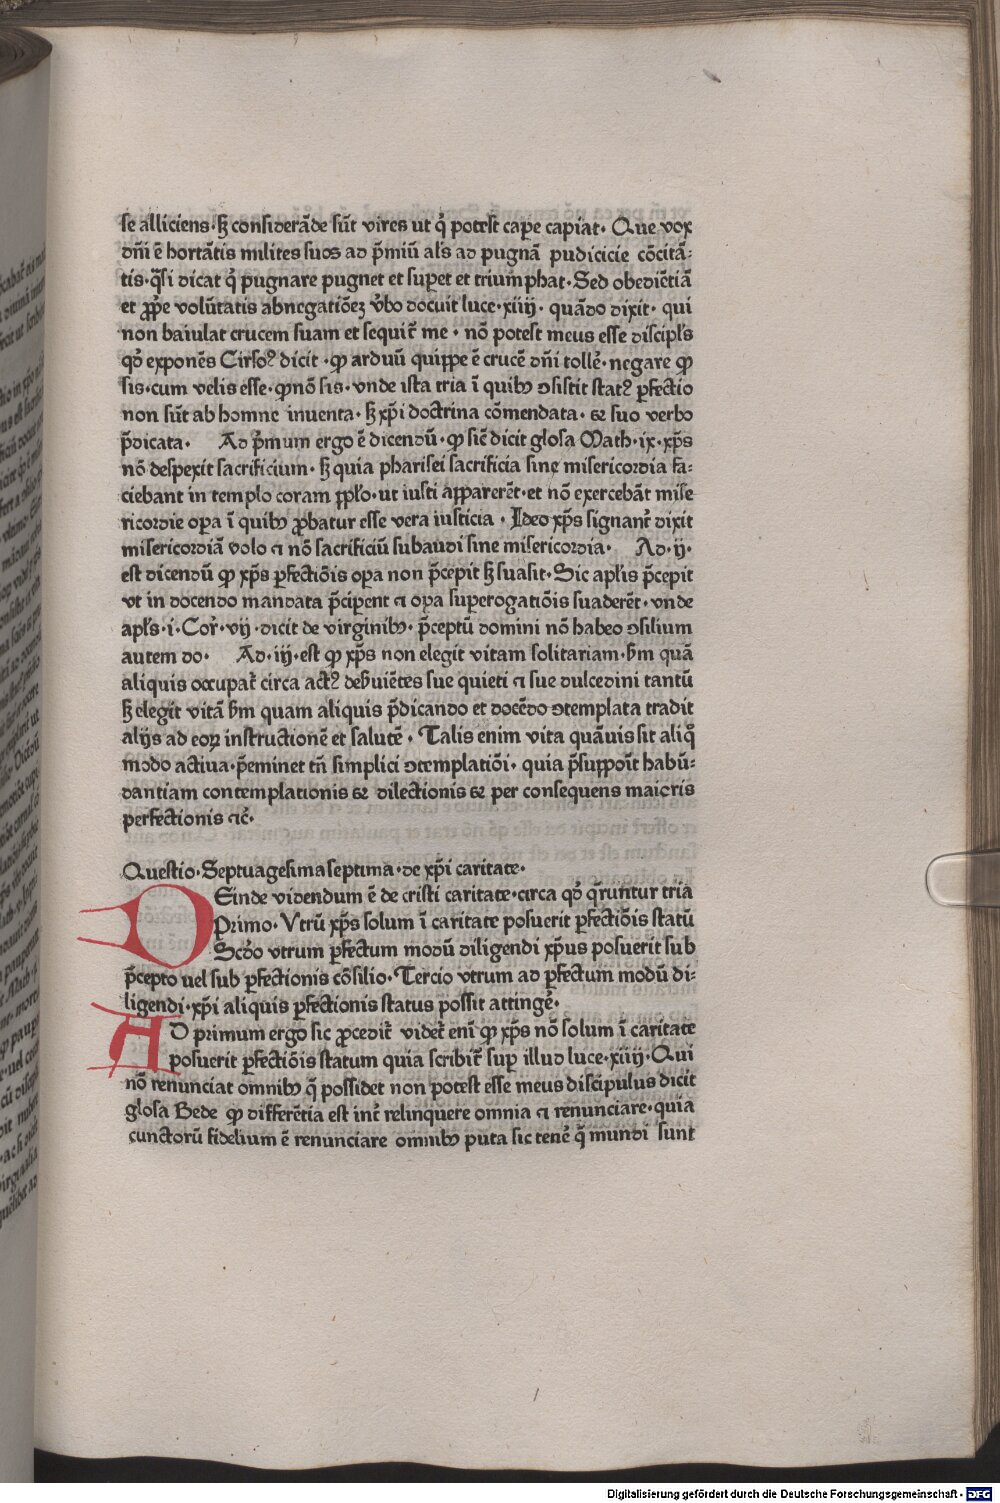 se alliciens·sꝫ considerāde sūt vires ut qͥ potest capere capiat· Que vox
dn̄i ē hortātis milites suos ad p̄miū als̄ ad pugnā pudicicie cōcitā⸗
tis·qͣsi dicat qͥ pugnare pugnet et suꝑet et triumphat·Sed obediētiā
et ꝓpͥe volūtatis abnegatiōeꝫ v̄bo docuit luce·xiiij· quādo dixit· qui
non baiulat crucem suam et sequit᷑ me · nō potest meus esse discipl̄s
qđ exponēs Cirsoꝰ dicit ·ꝙ arduū quippe ē crucē dn̄i tolle᷑·negare ꝙ
sis·cum velis esse·ꝙnō sis·vnde ista tria ī quibꝫ ↄsistit statꝰ ꝑfectio
non sūt ab homne inuenta·sꝫ xp̄i doctrina cōmendata· ⁊ suo verbo
p̄dicata· Ad p̄mum ergo ē dicendū·ꝙ sic̄ dicit glosa Math·ix·xp̄s
nō despexit sacrificium·sꝫ quia pharisei sacrificia sine misericordia fa⸗
ciebant in templo coram pp̄lo·ut iusti apparerēt·et nō exercebāt mise
ricordie opa ī quibꝫ ꝓbatur esse vera iusticia · Ideo xp̄s signant᷑ dixit
misericordiā volo ⁊ nō sacrificiū subaudi sine misericordia· Ad·ij·
est dicendū ꝙ xp̄s ꝑfectiōis opa non p̄cepit sꝫ suasit·Sic apl̄is p̄cepit
vt in docendo mandata p̄ciꝑent ⁊ opa suꝑerogatiōis suaderēt·vnde
apl̄s·i·Cor᷑·vij·dicit de virginibꝫ· p̄ceptū domini nō habeo ↄsilium
autem do· Ad·iij·est ꝙ xp̄s non elegit vitam solitariam·ẜm quā
aliquis occupat᷑ circa actꝰ deẜuiētes sue quieti ⁊ sue dulcedini tantū
sꝫ elegit vitā ẜm quam aliquis p̄dicando et docēdo ↄtemplata tradit
alijs ad eoꝝ instructionē et salutē · Talis enim vita quāuis sit aliqͦ
modo actiua·p̄eminet tn̄ simplici ↄtemplatiōi· quia p̄supponit᷑ habū⸗
dantiam contemplationis ⁊ dilectionis ⁊ per consequens maioris
perfectionis ⁊c̄·
Questio·Septuagesimaseptima·de xp̄i caritate·
DEinde videndum ē de cristi caritate·circa qđ q̄runtur tria
Primo·Vtrū xp̄s solum ī caritate posuerit ꝑfectiōis statū
Scd̄o vtrum ꝑfectum modū diligendi xp̄us posuerit sub
p̄cepto uel sub ꝑfectionis cōsilio·Tercio vtrum ad ꝑfectum modū di⸗
ligendi·xp̄i aliquis ꝑfectionis status possit attinge᷑·
AD primum ergo sic ꝓcedit᷑ videt᷑ enī ꝙ xp̄s nō solum ī caritate
posuerit ꝑfectiōis statum quia scribit᷑ sup illud luce·xiiij·Qui
nō renunciat omnibꝫ q̄ possidet non potest esse meus discipulus dicit
glosa Bede ꝙ differētia est int᷑ relinquere omnia ⁊ renunciare·quia
cunctorū fidelium ē renunciare omnibꝫ puta sic tene᷑ q̄ mundi sunt
Digitalisierung gefördert durch die Deutsche Forschungsgemeinschaft · DFG